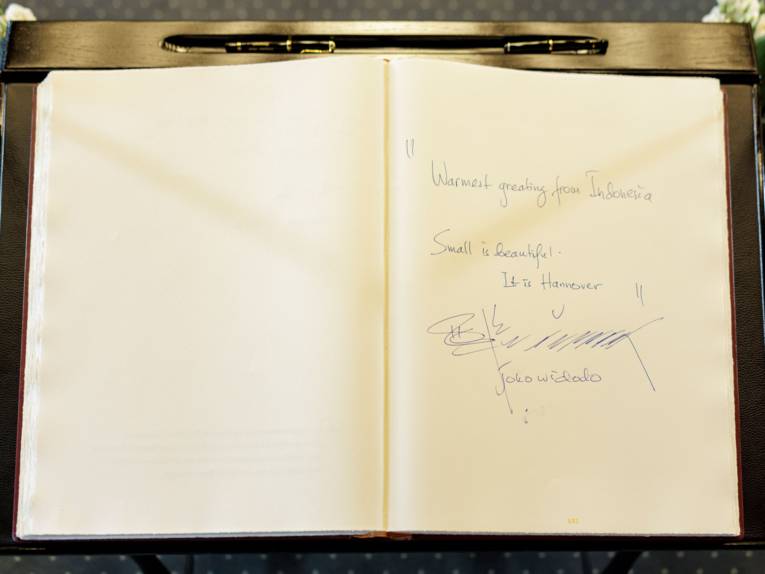 "
Warmest greating from Indonesia
Small is beautiful.
It is Hannover "
Joko Widodo